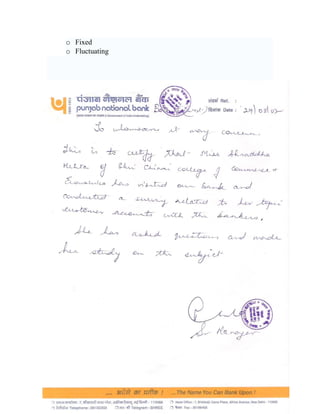 o Fixed
o Fluctuating
पंजाब नैशनल बैंक
punjab national bank
दिनांक Date : 24/03/02
To whomsoever it may concern
This is to certify that Miss Shraddha
Mehta of Shri Chinai college of Commerce &
Economics has visited our bank and
conducted a survey related to her topic
customer accounts with the bankers.
She has asked questions and made
her study on the subject
Sr Manager
... भरोसे का प्रतीक ! ...The Name You Can Bank Upon !